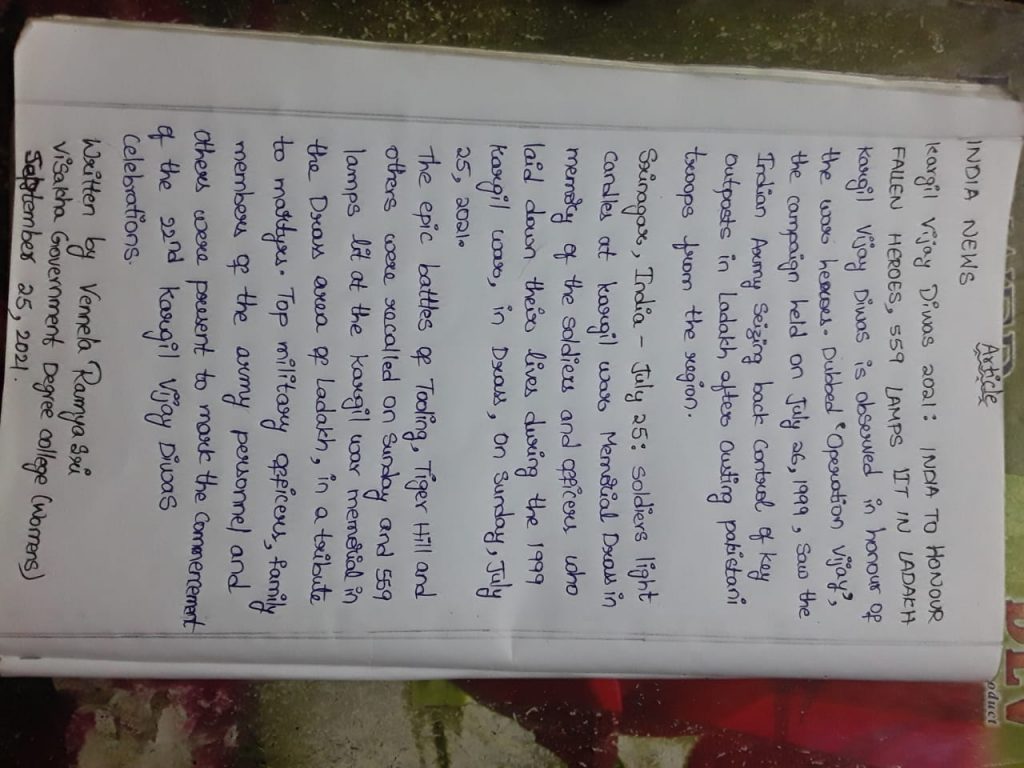 Article
INDIA NEWS
Kargil Vijay Diwas 2021: INDIA TO HONOUR
FALLEN HEROES, 559 LAMPS IT IN LADAKH
Kargil Vijay Diwas is observed in honour of
the war heroes. Dubbed "Operation Vijay",
the campaign held on July 26, 1999, Saw the
Indian Army Seizing back Control of key
outposts in Ladakh after Ousting pakistani
troops from the region.
Srinagar, India - July 25: Soldiers light
Candles at Kargil war Memorial Drass in
memory of the Soldiers and officers who
laid down their lives during the 1999
Kargil war, in Drass, on Sunday, July
25, 2021.
The epic battles of Toling, Tiger Hill and
others were racalled on Sunday and 559
lamps lit at the Kargil war memorial in
the Drass area of Ladakh, in a tribute
to martyrs. Top military officers, family
members of the army personnel and
others were present to mark the Commement
of the 22nd Kargil Vijay Diwas
Celebrations.
Written by Vennela Ramya Sri
Visakha Government Degree college (womens)
September 25, 2021.
oduct